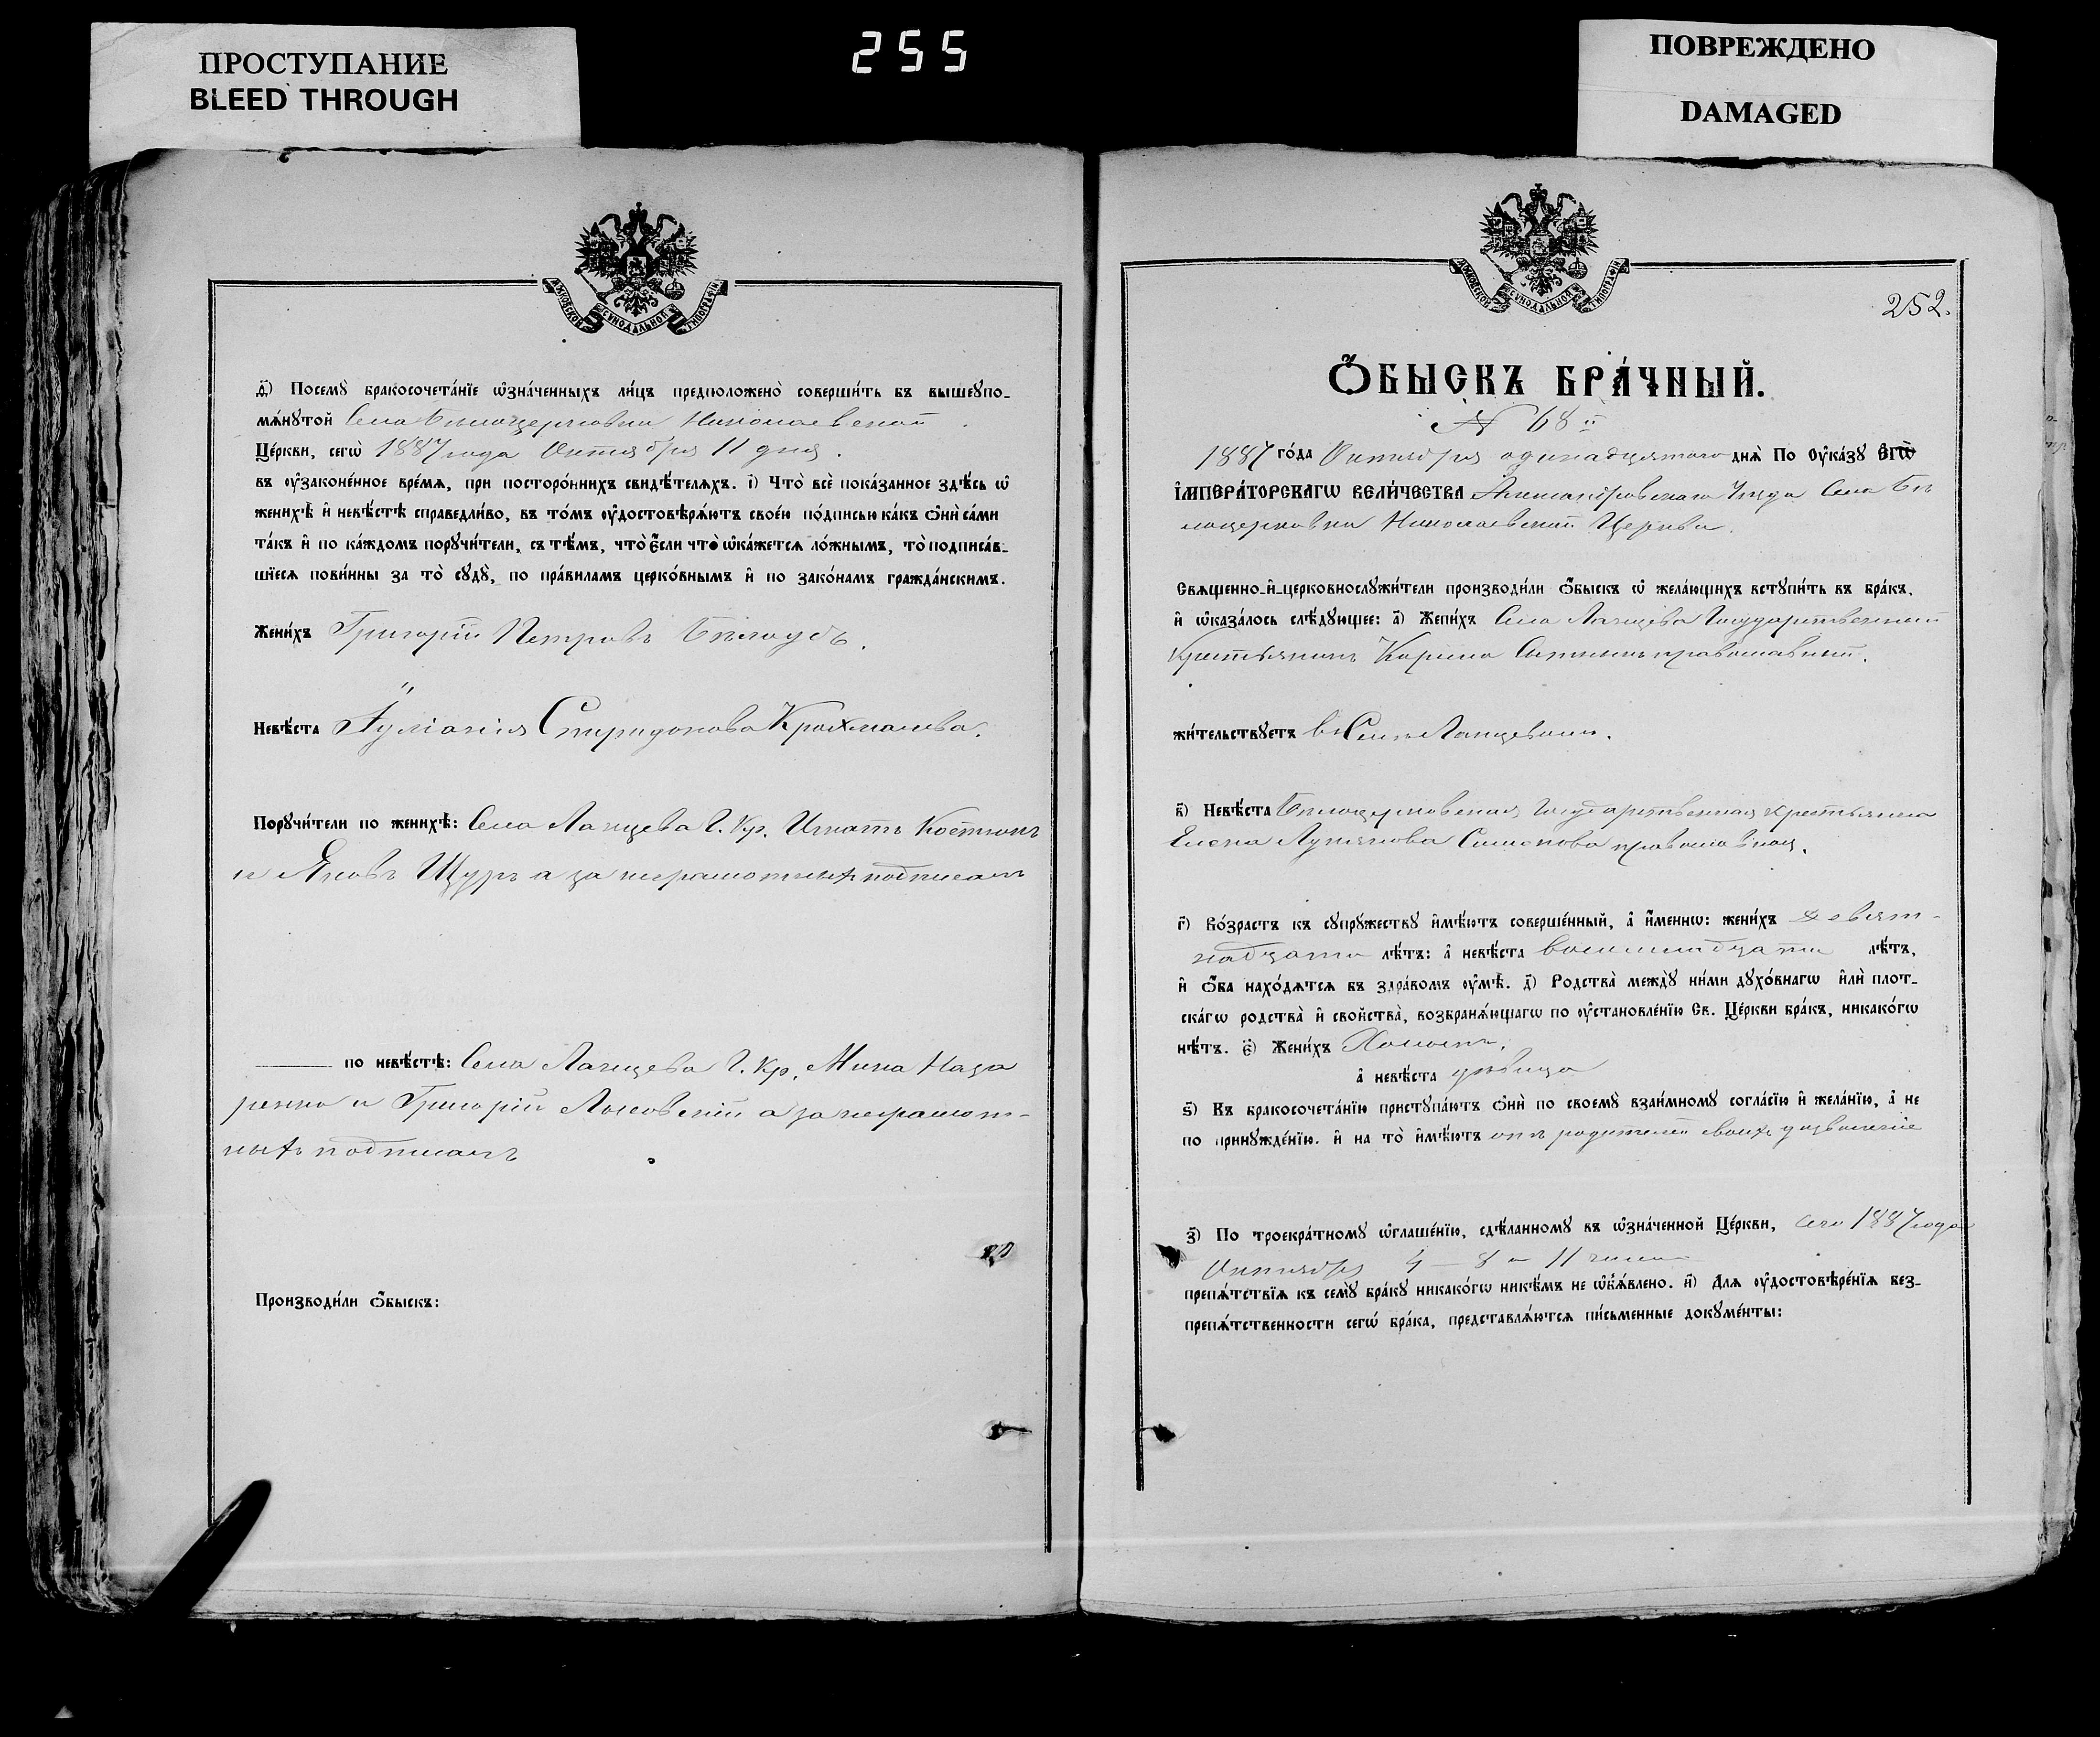 ПРОСТУПАНИЕ
BLEED THROUGH
255
ПОВРЕЖДЕНО
DAMAGED
МОСКОВСКОЙ СѴНОДАЛЬНОЙ ТИПОГРАФІИ
ѳ҃) Посемꙋ̀ бракосочета́нїе ѡ҆зна́ченныхъ ли́цъ предположено̀ соверши́ть въ вышеꙋпо-
мѧ́нꙋтой Села Бѣлоцерковки Николаевской
Це́ркви, сегѡ̀ 1887 года Октября 11 дня.
въ ᲂу҆зако́ненное вре́мѧ, при посторо́ннихъ свидѣ́телѧхъ. і҃) Что̀ всѐ пока́занное здѣ́сь ѡ҆
женихѣ̀ и҆ невѣ́стѣ справедли́во, въ то́мъ ᲂу҆достовѣрѧ́ютъ свое́ю по́дписью ка́къ ѻ҆нѝ са́ми
та́къ и҆ по ка́ждомъ порꙋчи́тели, съ тѣ́мъ, что̀ є҆́сли что̀ ѡ҆ка́жетсѧ ло́жнымъ, то̀ подписа́в-
шїесѧ пови́нны за то̀ сꙋдꙋ̀, по пра́виламъ церко́внымъ и҆ по зако́намъ гражда́нскимъ.
Жени́хъ Григорій Петровъ Бѣлоубъ.
Невѣ́ста Іуліанія Спиридонова Крохмалева.
Порꙋчи́тели по женихѣ̀: Села Ланцева Г. Кр. Игнатъ Костюкъ
и Яковъ Щуръ а за неграмотныхъ подписалъ
по невѣ́стѣ: Села Ланцева Г. Кр. Мина Наза
ренко и Григорій Лысовскій а за неграмот-
ныхъ подписалъ
Производи́ли ѻ҆́быскъ:
МОСКОВСКОЙ СѴНОДАЛЬНОЙ ТИПОГРАФІИ
252.
Ѻ҆́БЫСКЪ БРА́ЧНЫЙ.
№ 68
1887 го́да Октября одинадцятого днѧ̀ По ᲂу҆ка́зꙋ Є҆гѡ̀
І҆мпера́торскагѡ вели́чества Александровскаго Уезда Села Бѣ
лоцерковки Николаевской Церкви.
Свѧще́нно-и҆-церковнослꙋжи́тели производи́ли ѻ҆́быскъ ѡ҆ жела́ющихъ встꙋпи́ть въ бра́къ,
и҆ ѡ҆каза́лось слѣ́дꙋющее: а҃) Жени́хъ Села Ланцева Государственный
Крестьянинъ православный.
жи́тельствꙋетъ въ Селѣ Ланцевомъ.
в҃) Невѣ́ста Бѣлоцерковская Государственная крестьянка
Елена Лукьянова Симонова православная.
г҃) Во́зрастъ къ сꙋпрꙋ́жествꙋ и҆мѣ́ютъ соверше́нный, а҆ и҆́менно: жени́хъ девят-
надцати лѣ́тъ: а҆ невѣ́ста восемнадцати лѣ́тъ,
и҆ ѻ҆́ба нахо́дѧтсѧ въ здра́вомъ ᲂу҆мѣ̀. д҃) Родства̀ междꙋ̀ ни́ми дꙋхо́внагѡ и҆лѝ плот-
ска́гѡ родства̀ и҆ свойства̀, возбранѧ́ющагѡ по ᲂу҆становле́нїю Св. Це́ркви бра́къ, никако́гѡ
нѣ́тъ. є҃) Жени́хъ Холостъ,
а҆ невѣ́ста дѣвица
ѕ҃) Къ бракосочета́нїю пристꙋпа́ютъ ѻ҆нѝ по своемꙋ̀ взаи́мномꙋ согла́сїю и҆ жела́нїю, а҆ не
по принꙋжде́нїю. и҆ на то̀ и҆мѣ́ютъ отъ родителей своихъ дозволеніе
з҃) По троекра́тномꙋ ѡ҆глаше́нїю, сдѣ́ланномꙋ въ ѡ҆зна́ченной Це́ркви, сего 1887 года
Октября 4 — 8 и 11 чисел
препѧ́тствїѧ къ семꙋ̀ бра́кꙋ никако́гѡ никѣ́мъ не ѡ҆б̾ѧ́влено. и҃) Длѧ ᲂу҆достовѣре́нїѧ без-
препѧ́тственности сегѡ̀ бра́ка, представлѧ́ютсѧ пи́сьменные докꙋме́нты: